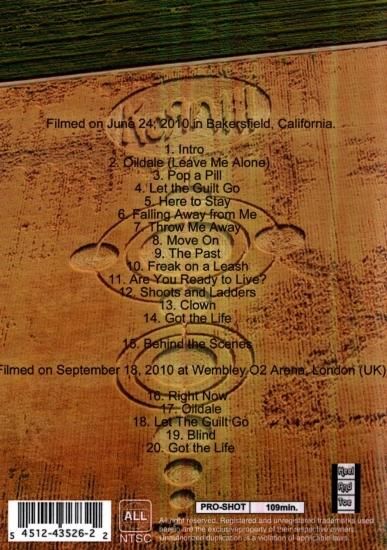 KoRnIII
Filmed on June 24, 2010 in Bakersfield, California.
1. Intro
2. Oildale (Leave Me Alone)
3. Pop a Pill
4. Let the Guilt Go
5. Here to Stay
6. Falling Away from Me
7. Throw Me Away
8. Move On
9. The Past
10. Freak on a Leash
11. Are You Ready to Live?
12. Shoots and Ladders
13. Clown
14. Got the Life
15. Behind the Scenes
Filmed on September 18, 2010 at Wembley O2 Arena, London (UK)
16. Right Now
17. Oildale
18. Let The Guilt Go
19. Blind
20. Got the Life
Reel
And
Tea
5 4512-43526-2 2
ALL
NTSC
PRO-SHOT 109min.
All right reserved. Registered and unregistered trademarks used
herein are the exclusiveproperty of their respective owners.
Unauthorized duplication is a violation of applicable laws.